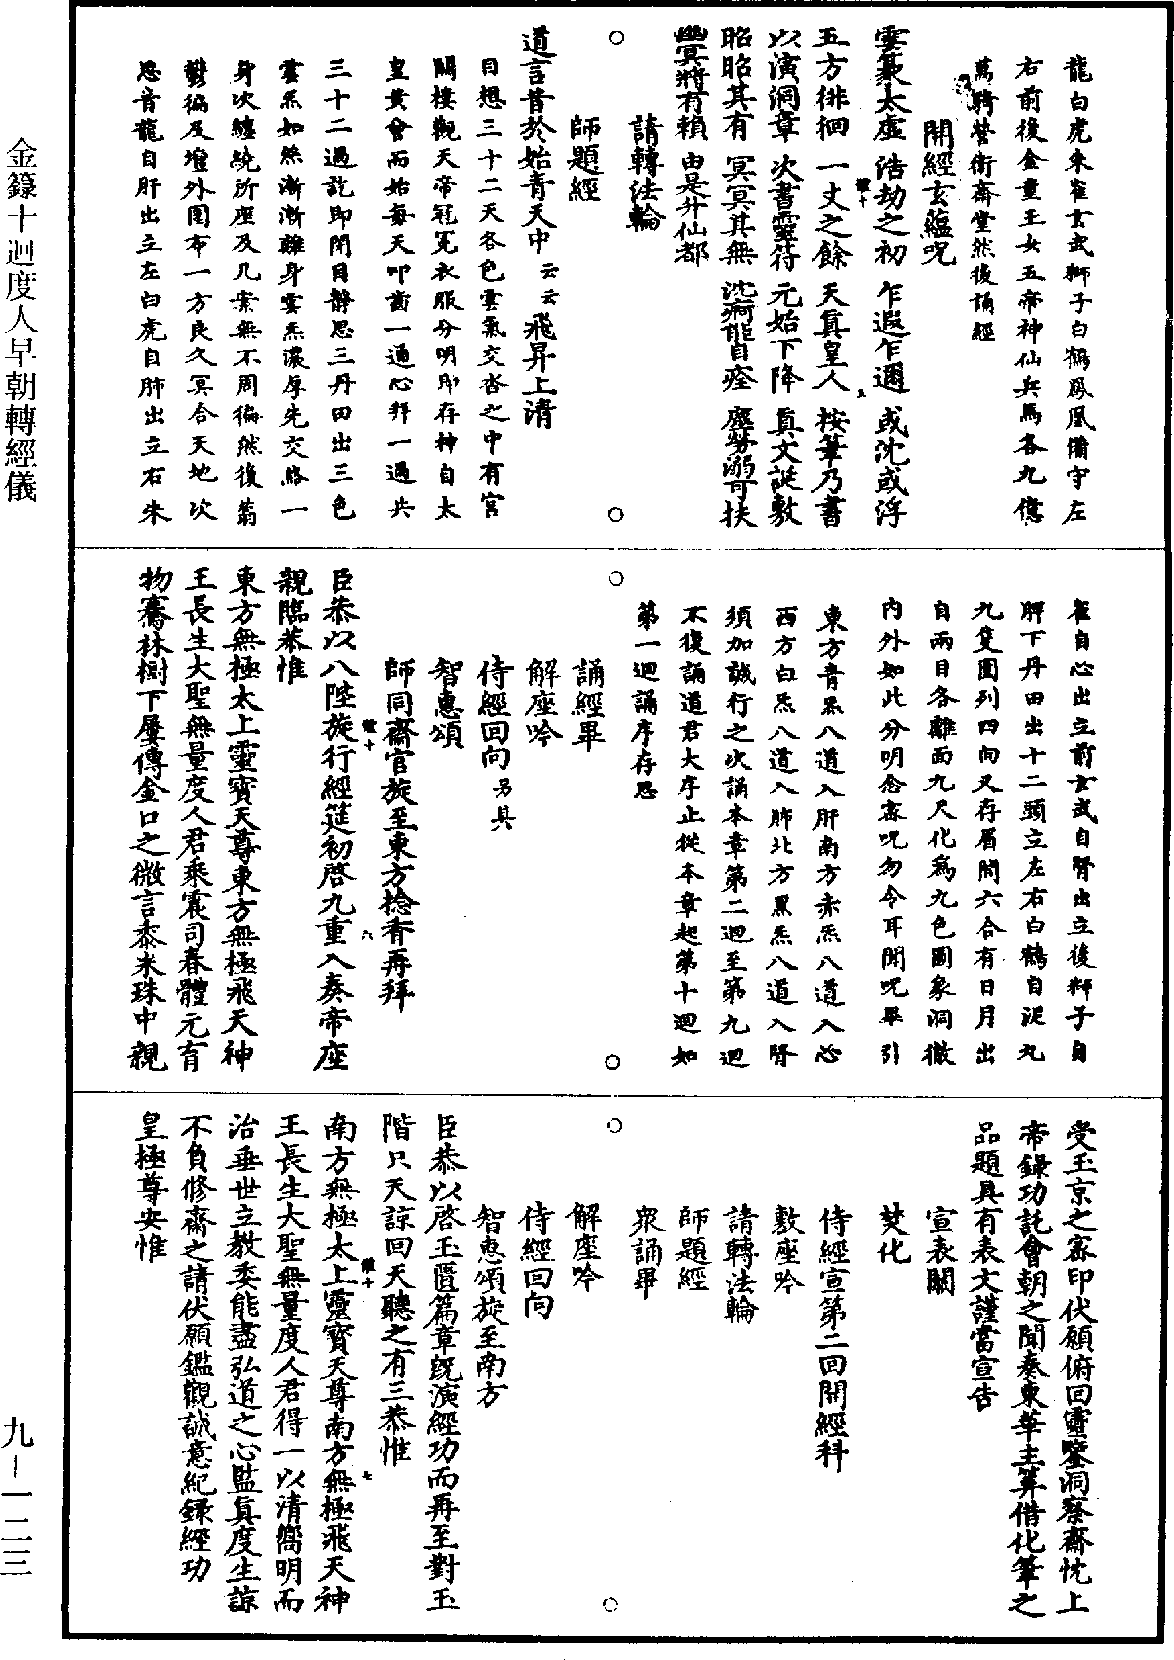 龍白虎朱雀玄武獅子白鶴鳳凰備守左
右前後金童玉女五帝神仙兵馬各九億
萬騎營衛齋堂然後誦經
開經玄蘊呪
雲篆太虛 浩劫之初 乍遐乍邇 或沈或浮
五方徘徊 一丈之餘 天真皇人 按筆乃書
以演洞章 次書靈符 元始下降 真文誕敷
昭昭其有 冥冥其無 沈痾能自痊 塵勞溺可扶
幽冥將有賴 由是升仙都
請轉法輪
師題經
道言昔於始青天中云云飛昇上清
目想三十二天各色雲氣交沓之中有宮
闕樓觀天帝冠冕衣服分明即存神自太
皇黃曾而始每天叩齒一通心拜一過共
三十二過訖即閉目靜思三丹田出三色
雲炁如無漸漸離身雲炁濃厚先交絡一
身次纏繞所座及几案無不周徧然後蓊
鬱徧及壇外圍布一方良久冥合天地次
思音龍自肝出立左白虎自肺出立右朱
雀自心出立前玄武自腎出立後獅子自
脾下丹田出十二頭立左右白鶴自泥丸
九隻圍列四向又存眉間六合有日月出
自兩目各離面九尺化為九色圓象洞徹
內外如此分明念密呪勿令耳聞呪畢引
東方青炁八道入肝南方赤炁八道入心
西方白炁八道入肺北方黑炁八道入腎
須加誠行之次誦本章第二迴至第九迴
不復誦道君大序止從本章起第十迴如
第一迴誦序存思
誦經畢
解座吟
侍經回向另具
智惠頌
師同齋官旋至東方捻香再拜
臣恭以八陛旋行經筵初啓九重入奏帝座
親臨恭惟
東方無極太上靈寶天尊東方無極飛天神
王長生大聖無量度人君乘震司春體元有
物騫林樹下屢傳金口之微言黍米珠中親
受玉京之密印伏願俯回靈鑒洞察齋忱上
帝錄功託會朝之聞奏東華主筭借化筆之
品題具有表文謹當宣告
宣表關
焚化
侍經宣第二回開經科
敷座吟
請轉法輪
師題經
衆誦畢
解座吟
侍經回向
智惠頌旋至南方
臣恭以啓玉匱篇章既演經功而再至對玉
階只天諒回天聽之有三恭惟
南方無極太上靈寶天尊南方無極飛天神
王長生大聖無量度人君得一以清嚮明而
治垂世立教委能盡弘道之心監真度生諒
不負修齋之請伏願鑑觀誠意紀錄經功
皇極尊安惟
金籙十迴度人早朝轉經儀
九-一二三